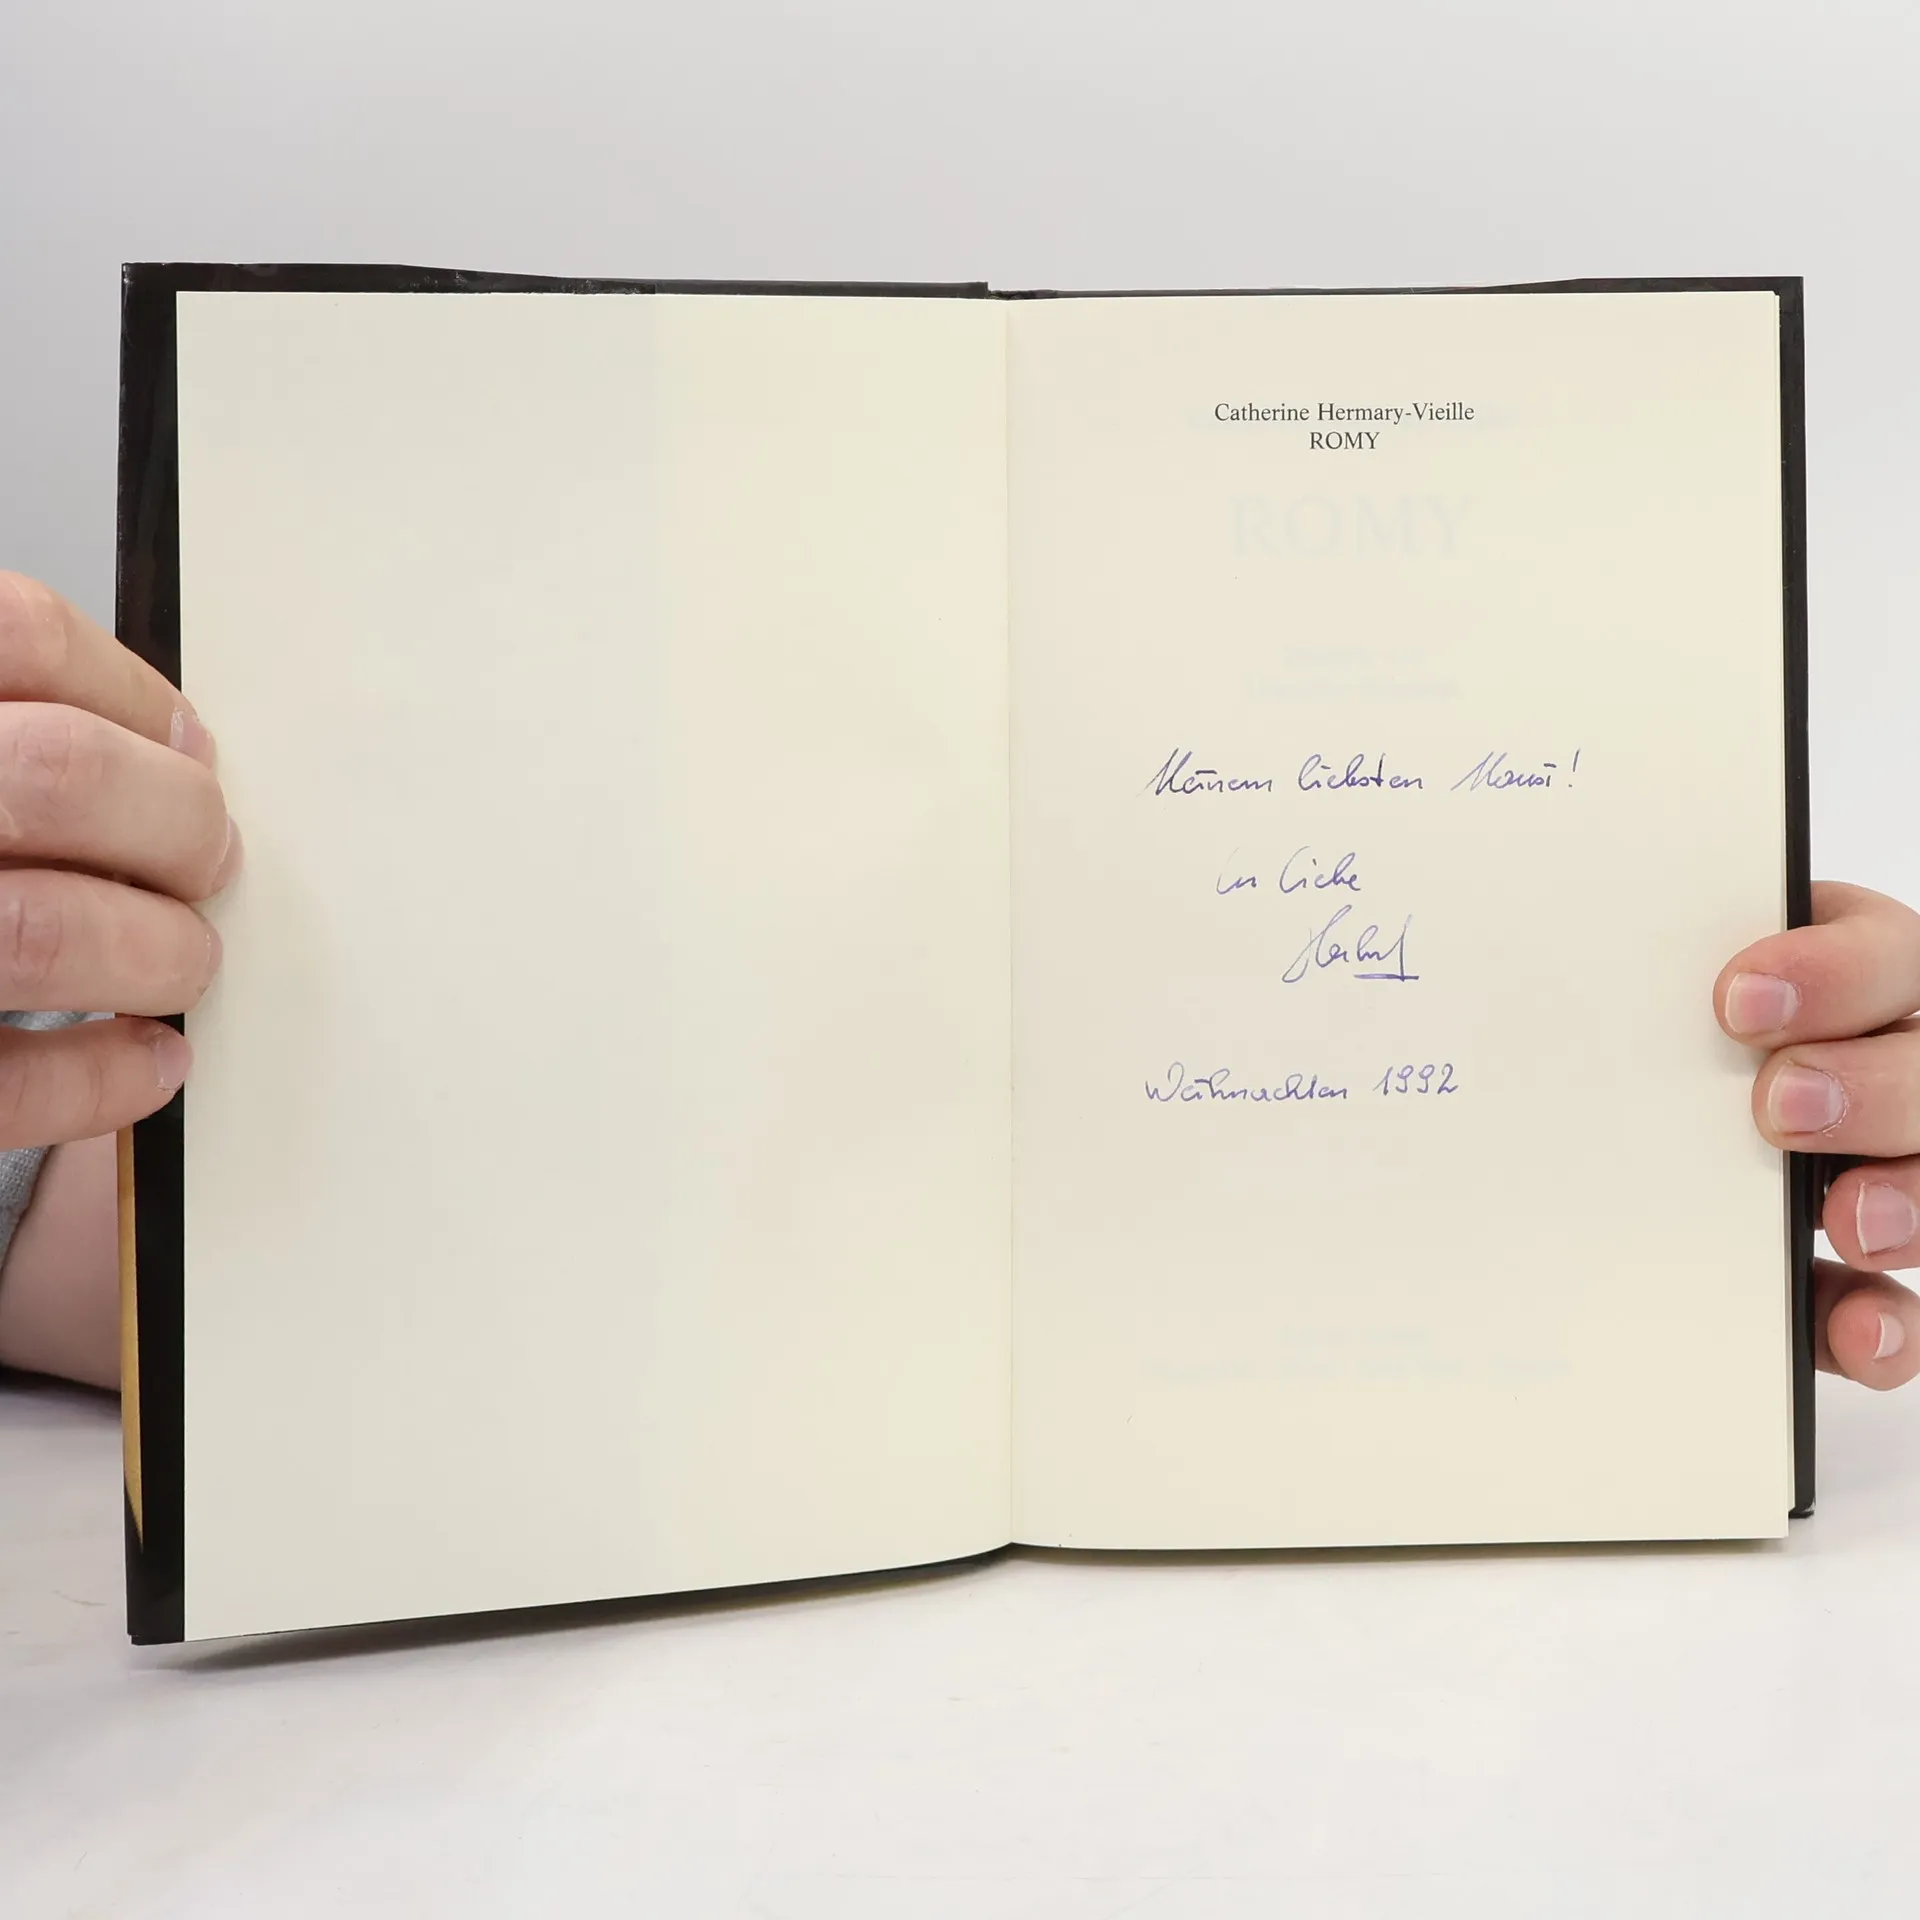 Catherine Hermary-Vieille
ROMY
ROMY
Meinem liebsten Mausi!
In Liebe
Herbert
Weihnachten 1992